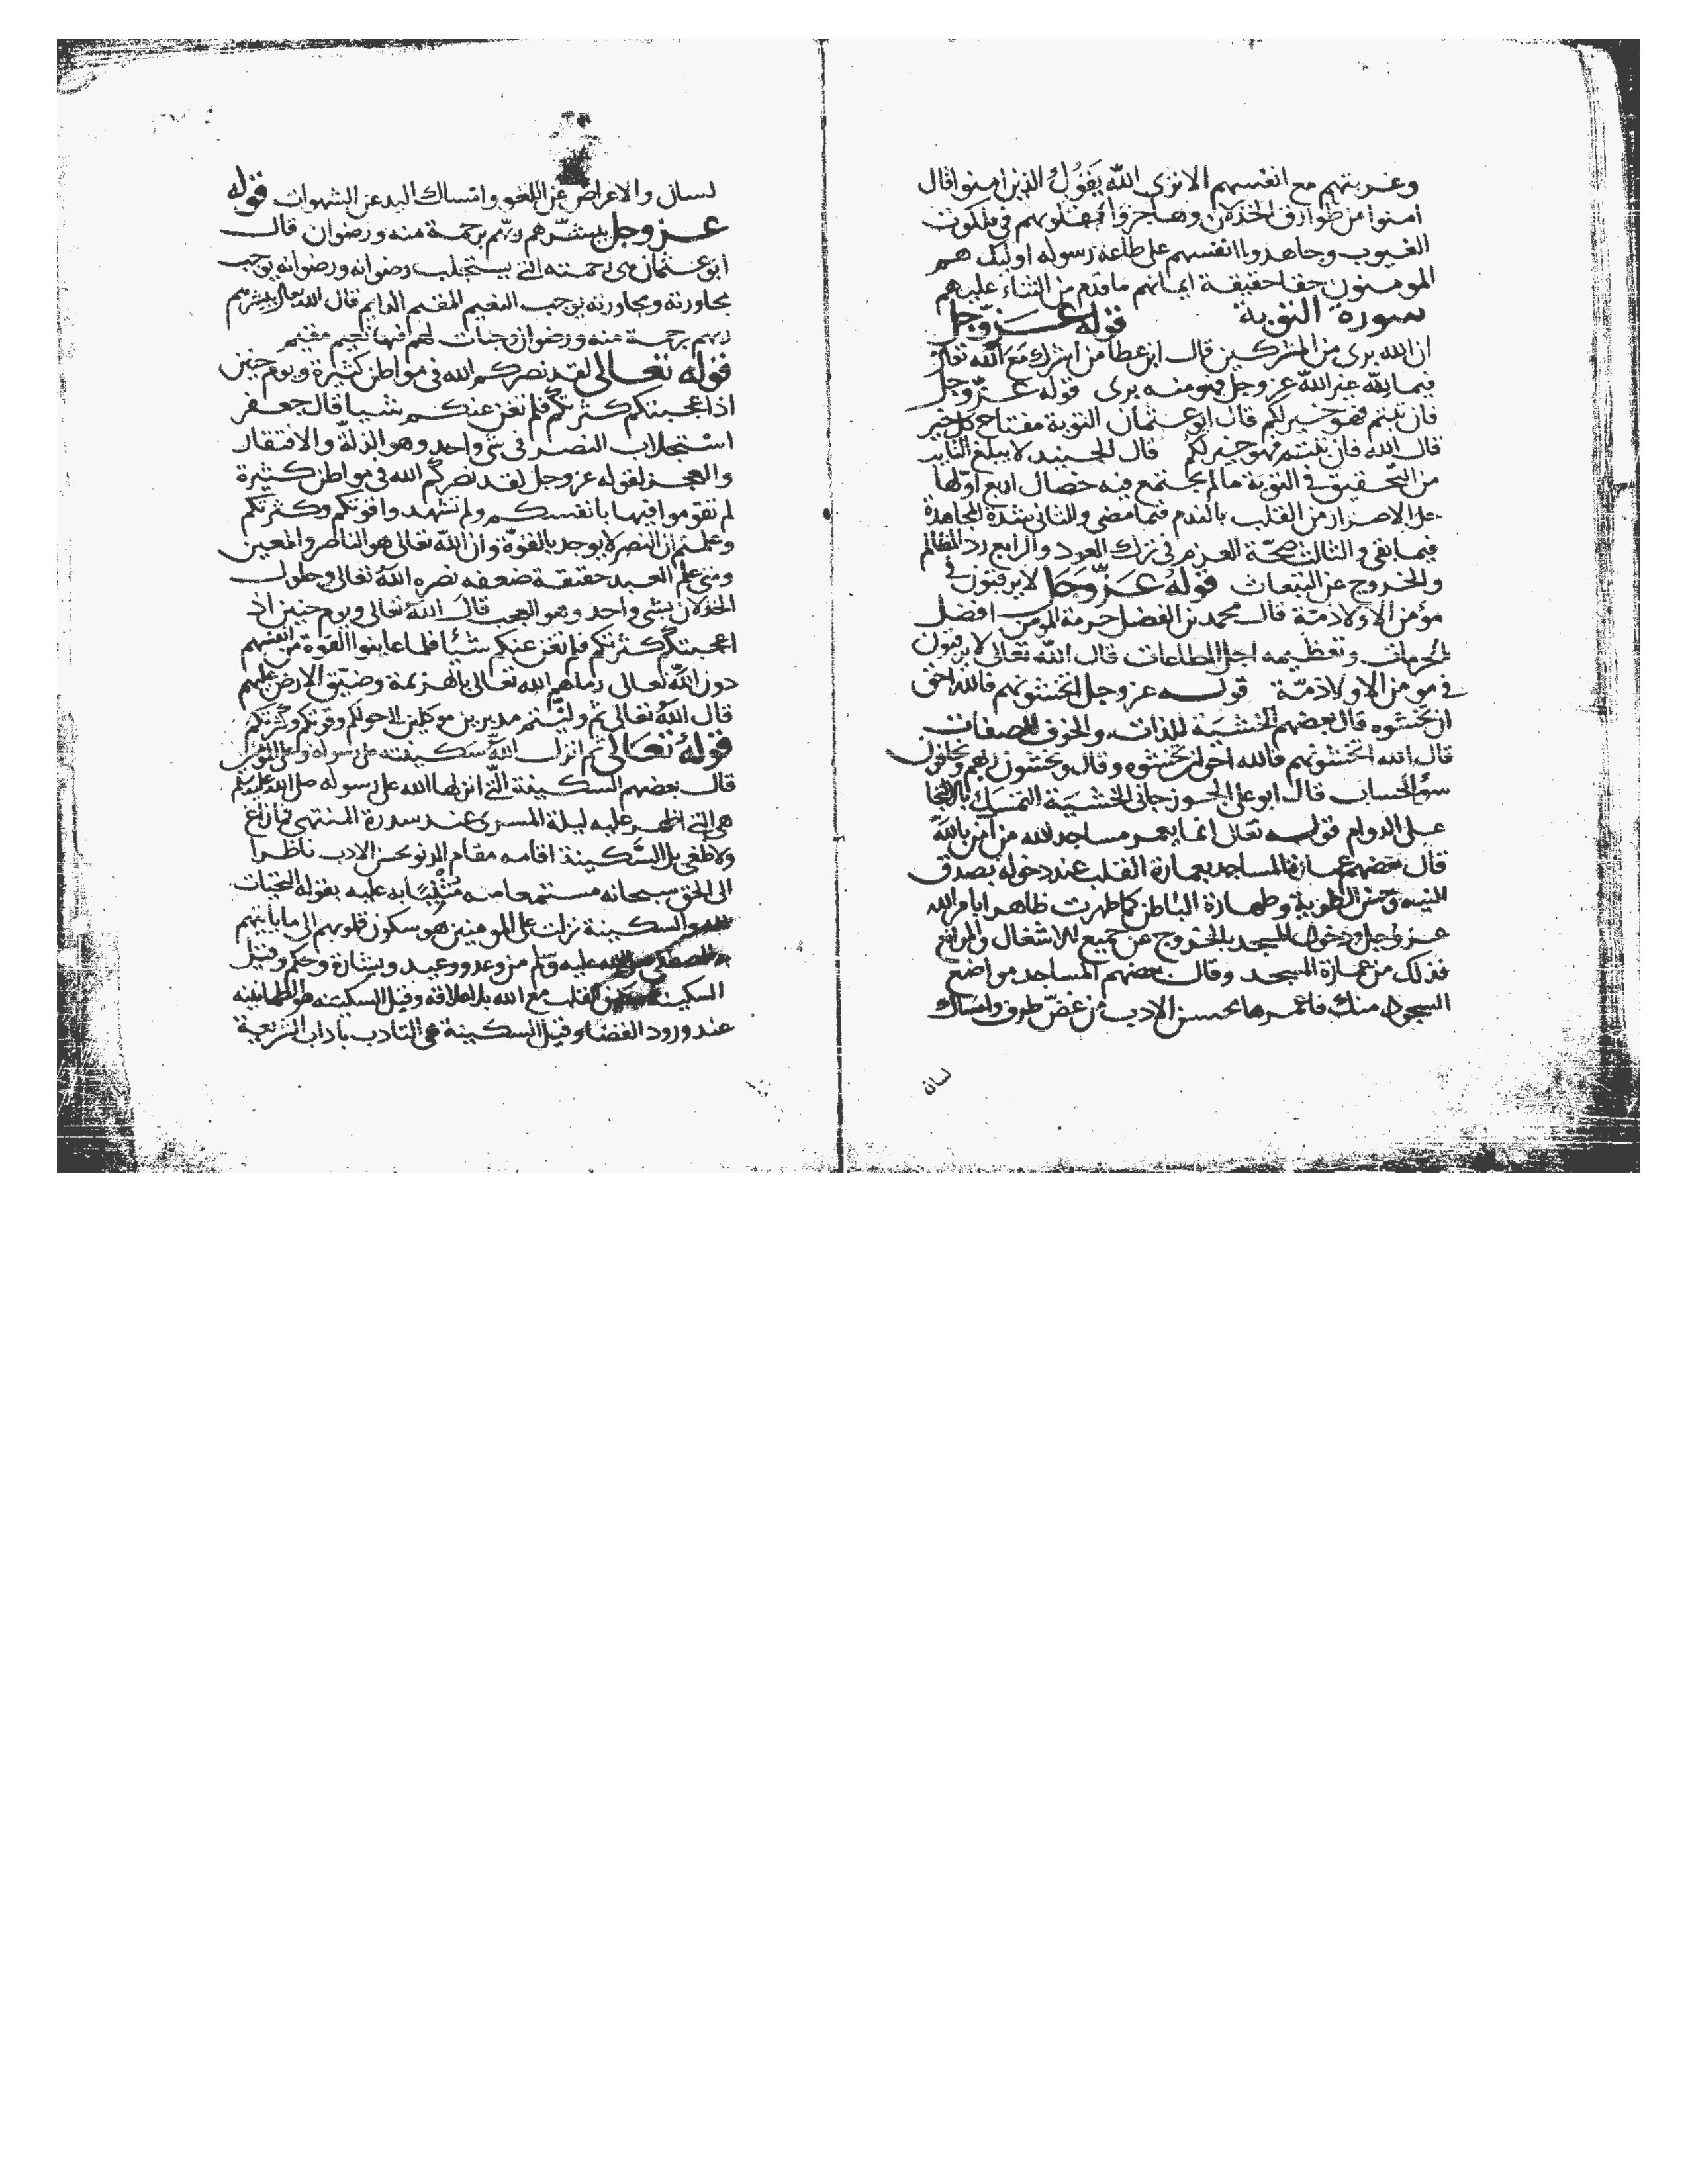 وغربتهم مع انفسهم الا ترى الله يقول الذين امنوا قال
امنوا من طوارق الخذلان وهاجروا بقلوبهم في ملكوت
الغيوب وجاهدوا انفسهم على طاعة رسوله اوليك هم
المومنون حقا حقيقة ايمانهم ما قدم من الثناء عليهم
سورة التوبة قوله عز وجل
ان الله برى من المشركين قال ابن عطا من اشرك مع الله تعالى
فيما لله غير الله عز وجل فهو منه برى قوله عز وجل
فان تبتم فهو خير لكم قال ابو عثمان التوبة مفتاح كل خير
قال الله فان تبتم فهو خير لكم قال الجنيد لا يبلغ التايب
من التحقيق في التوبة ما لم يجتمع فيه خصال اربع اولها
حل الاصرار من القلب بالندم فيما مضى والثاني شدة المجاهدة
فيما بقى والثالث صحة العزم في ترك العود والرابع رد المظالم
والخروج عن التبعات قوله عز وجل لا يرقبون في
مؤمن الا ولا ذمة قال محمد بن الفضل حرمة المومن افضل
الحرمات وتعظيمه اجل الطاعات قال الله تعالى لا يرقبون
في مومن الا ولا ذمة قوله عز وجل اتخشونهم فالله احق
ان تخشوه قال بعضهم الخشية للذات والخوف للصفات
قال الله اتخشونهم فالله احق ان تخشوه وقال ويخشون ربهم ويخافون
سوء الحساب قال ابو علي الجوزجاني الخشية التمسك بالالتجا
على الدوام قوله تعالى انما يعمر مساجد الله من آمن بالله
قال بعضهم عمارة المساجد بعمارة القلب عند دخوله بصدق
النية وحسن الطوية وطهارة الباطن كما طهرت ظاهرا بامر الله
عز وجل ودخول المسجد بالخروج عن جميع الاشغال والموانع
فذلك من عمارة المسجد وقال بعضهم المساجد مواضع
السجود منك فاعمرها بحسن الادب من غض طرف وامساك
لسان
لسان والاعراض عن اللغو وامساك اليد عن الشهوات قوله
عز وجل يبشرهم ربهم برحمة منه ورضوان قال
ابو عثمان هى رحمته التي يستجلب رضوانه ورضوانه يوجب
مجاورته ومجاورته يوجب النعيم المقيم الدايم قال الله تعالى يبشرهم
ربهم برحمة منه ورضوان وجنات لهم فيها نعيم مقيم
قوله تعالى لقد نصركم الله في مواطن كثيرة ويوم حنين
اذ اعجبتكم كثرتكم فلم تغن عنكم شيا قال جعفر
استجلاب النصر في شي واحد وهو الذلة والافتقار
والعجز لقوله عز وجل لقد نصركم الله في مواطن كثيرة
لم تقوموا فيها بانفسكم ولم تشهدوا قوتكم وكثرتكم
وعلمتم ان النصر لا يوجد بالقوة وان الله تعالى هو الناصر والمعين
ومتى علم العبد حقيقة ضعفه نصره الله تعالى وحلول
الخذلان بشي واحد وهو العجب قال الله تعالى ويوم حنين اذ
اعجبتكم كثرتكم فلم تغن عنكم شيئا فلما عاينوا القوة من انفسهم
دون الله تعالى رماهم الله تعالى بالهزيمة وضيق الارض عليهم
قال الله تعالى ثم وليتم مدبرين موكلين الى حولكم وقوتكم وكثرتكم
قوله تعالى ثم انزل الله سكينته على رسوله وعلى المؤمنين
قال بعضهم السكينة التي انزلها الله على رسوله صلى الله عليه وسلم
هى التي اظهر عليه ليلة المسرى عند سدرة المنتهى فما زاغ
ولا طغى بل السكينة اقامه مقام الدنو بحسن الادب ناظرا
الى الحق سبحانه مستمعا منه مثنيا به عليه بقوله التحيات
لله والسكينة نزلت على المومنين هو سكون قلوبهم الى ما ياتيهم
به المصطفى صلى الله عليه وسلم من وعد ووعيد وبشارة وحكم وقيل
السكينة سكون القلب مع الله بلا علاقة وقيل السكينه هو الطمانينه
عند ورود القضاء وقيل السكينة هى التادب باداب الشريعة